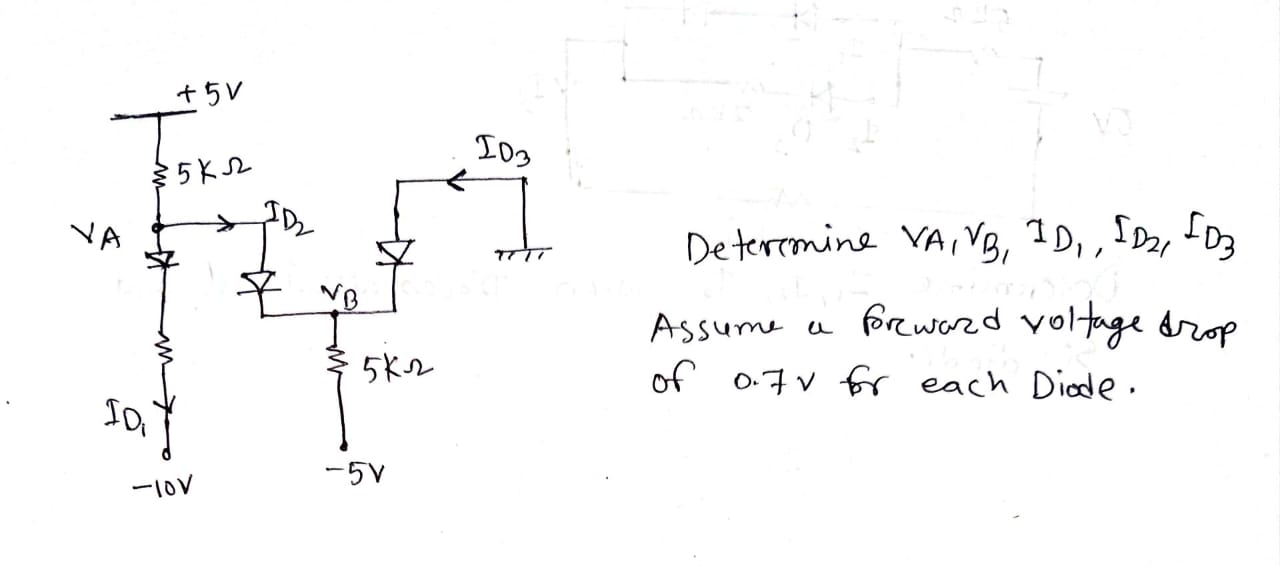 +5V
5KΩ
ID3
VA
ID2
VB
5KΩ
ID1
-10V
-5V
Determine VA, VB, ID1, ID2, ID3
Assume a forward voltage drop
of 0.7 v for each Diode.